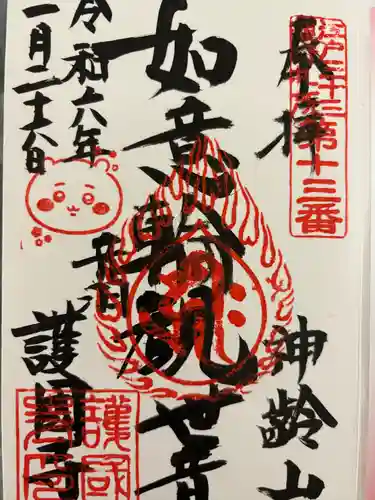 奉拝
江戸三十三ヶ所第十三番
神齢山
如意輪観世音
令和六年
一月二十八日
護国寺
護國